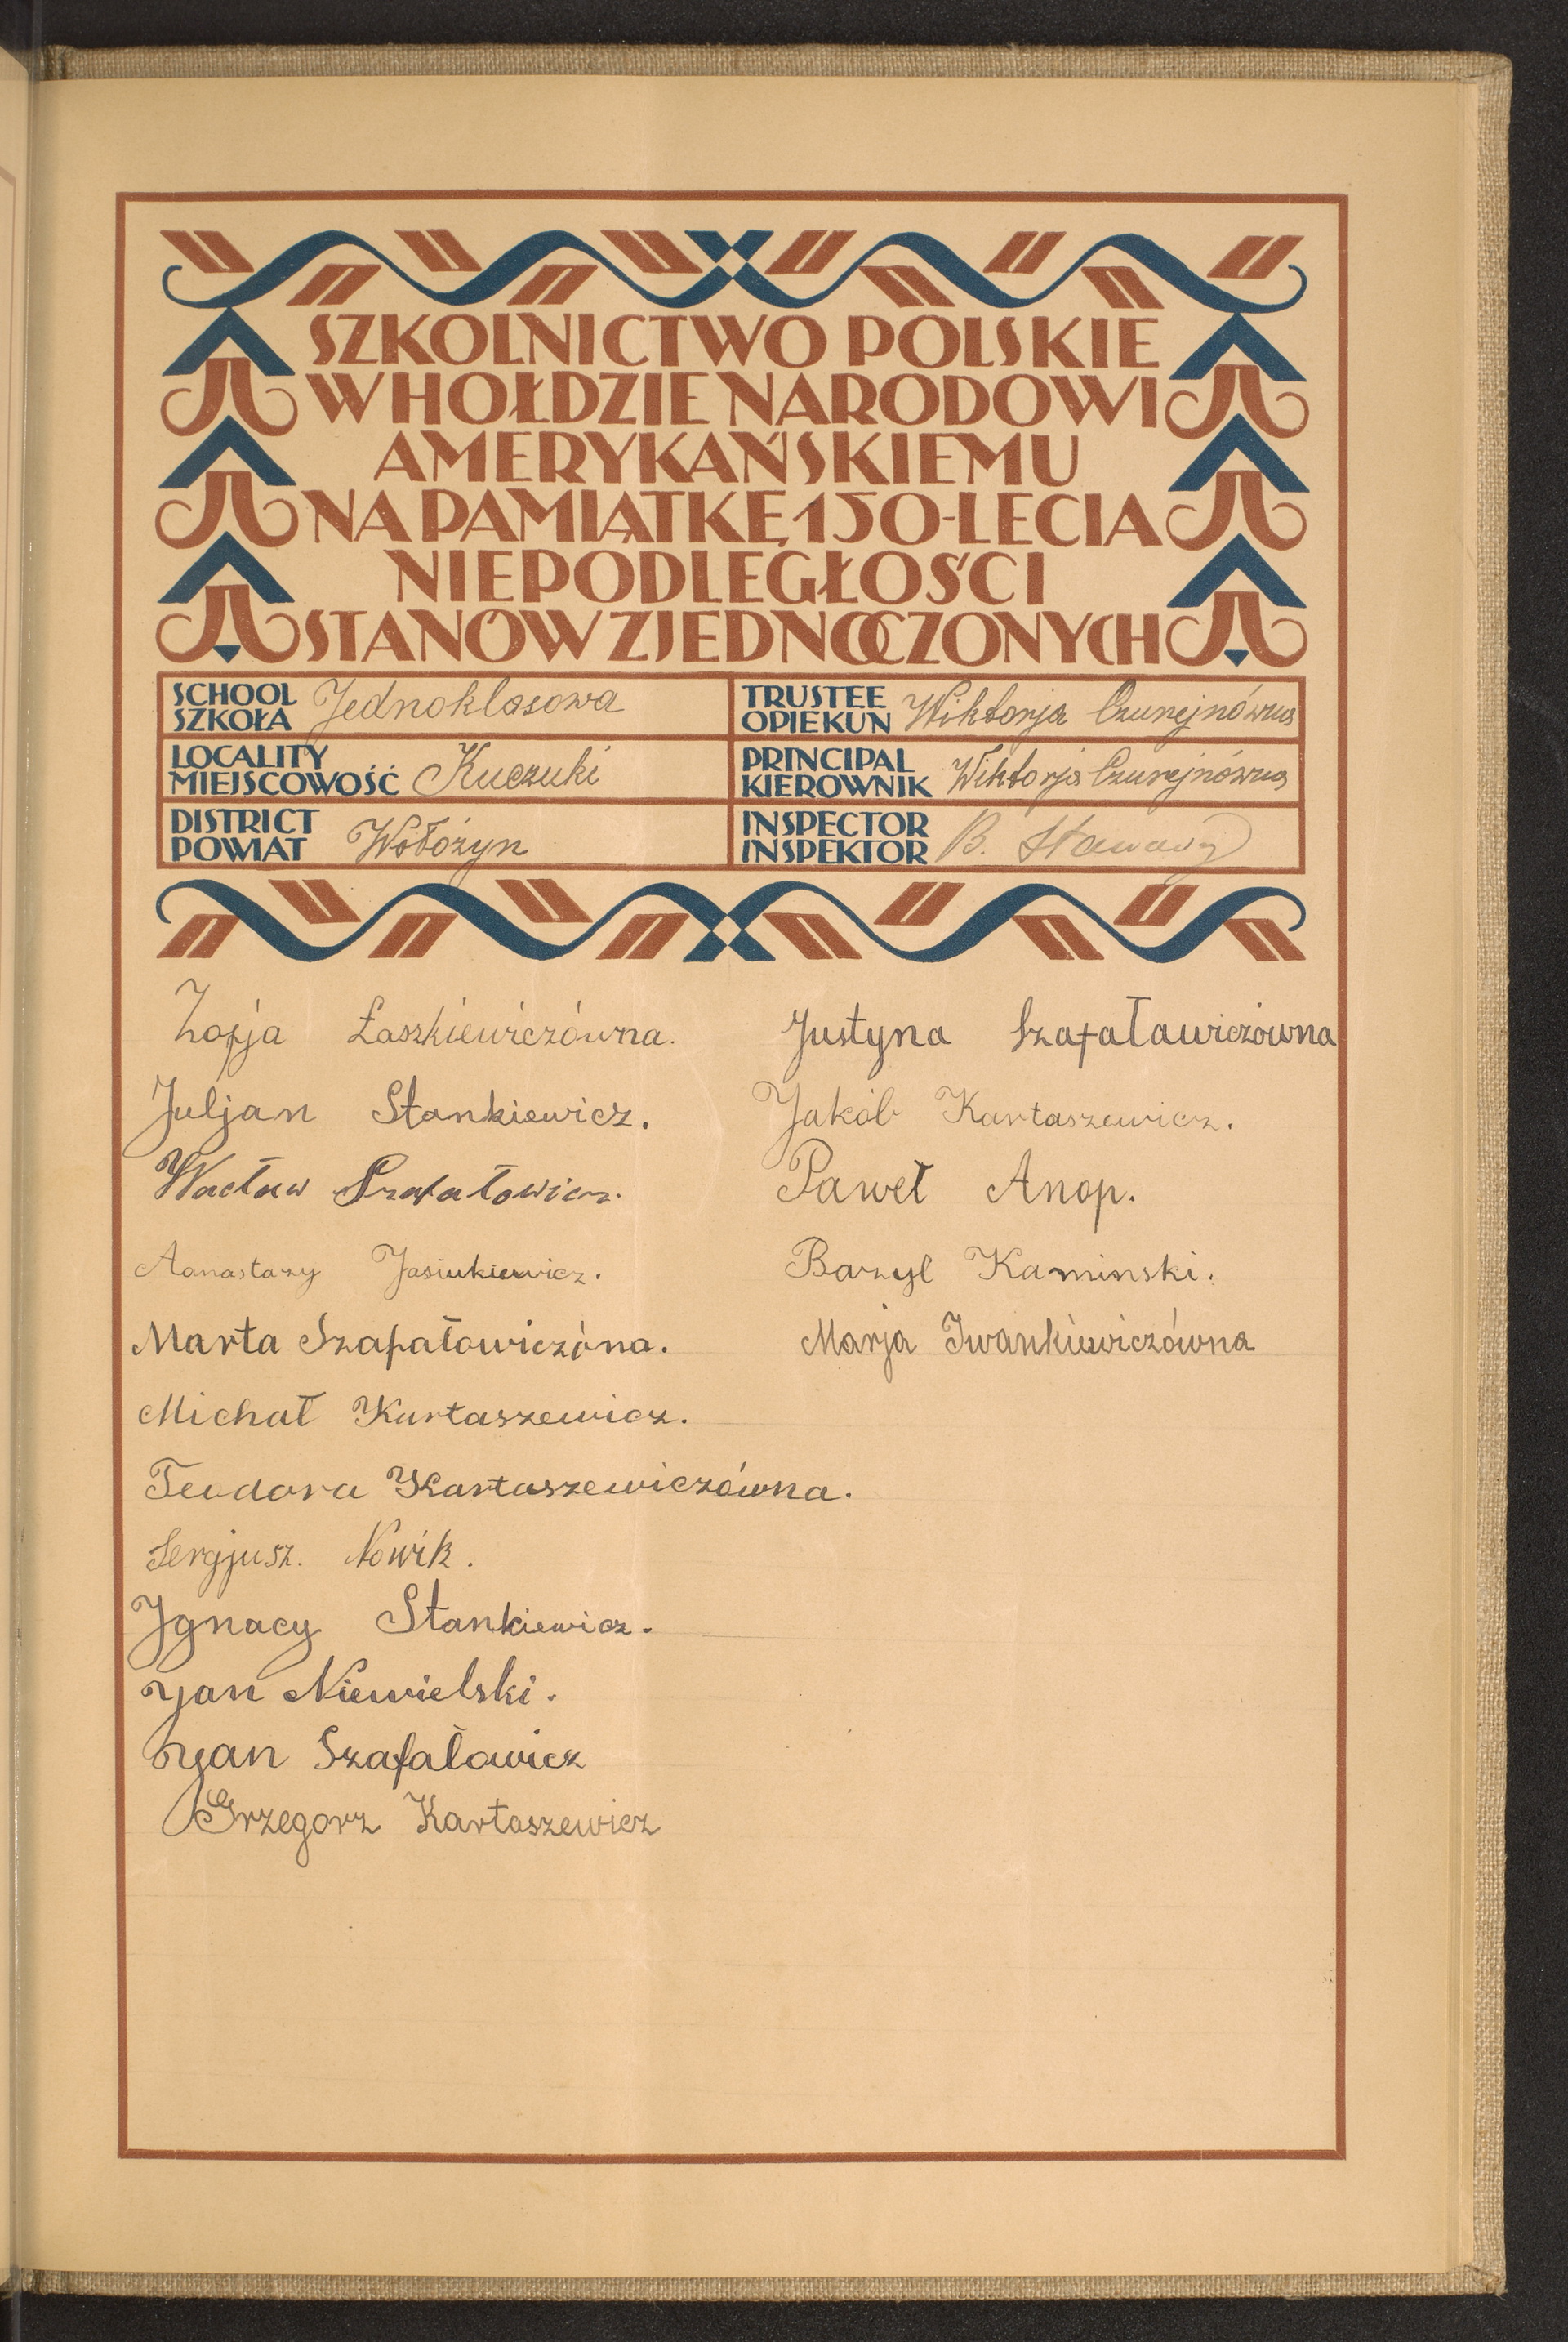 SZKOLNICTWO POLSKIE
W HOŁDZIE NARODOWI
AMERYKAŃSKIEMU
NA PAMIĄTKĘ 150-LECIA
NIEPODLEGŁOŚCI
STANÓW ZJEDNOCZONYCH
SCHOOL
SZKOŁA Jednoklasowa
TRUSTEE
OPIEKUN Wiktorja Czurejnówna
LOCALITY
MIEJSCOWOŚĆ Kuczuki
PRINCIPAL
KIEROWNIK Wiktorja Czurejnówna
DISTRICT
POWIAT Wołożyn
INSPECTOR
INSPEKTOR B.
Zofja Łaszkiewiczówna.
Juljan Stankiewicz.
Wacław Szafałowicz.
Aanastazy Jasiukiewicz.
Marta Szafałowiczóna.
Michał Kurtaszewicz.
Teodora Kartaszewiczówna.
Sergjusz. Nowik.
Jgnacy Stankiewicz.
Jan Niewielski.
Jan Szafałowicz
Grzegorz Kartaszewicz
Justyna Szafaławiczówna
Jakób Kurtaszewicz.
Paweł Anop.
Bazyl Kaminski.
Marja Iwankiewiczówna